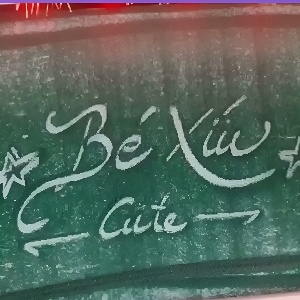 Bé Xíu
Cute